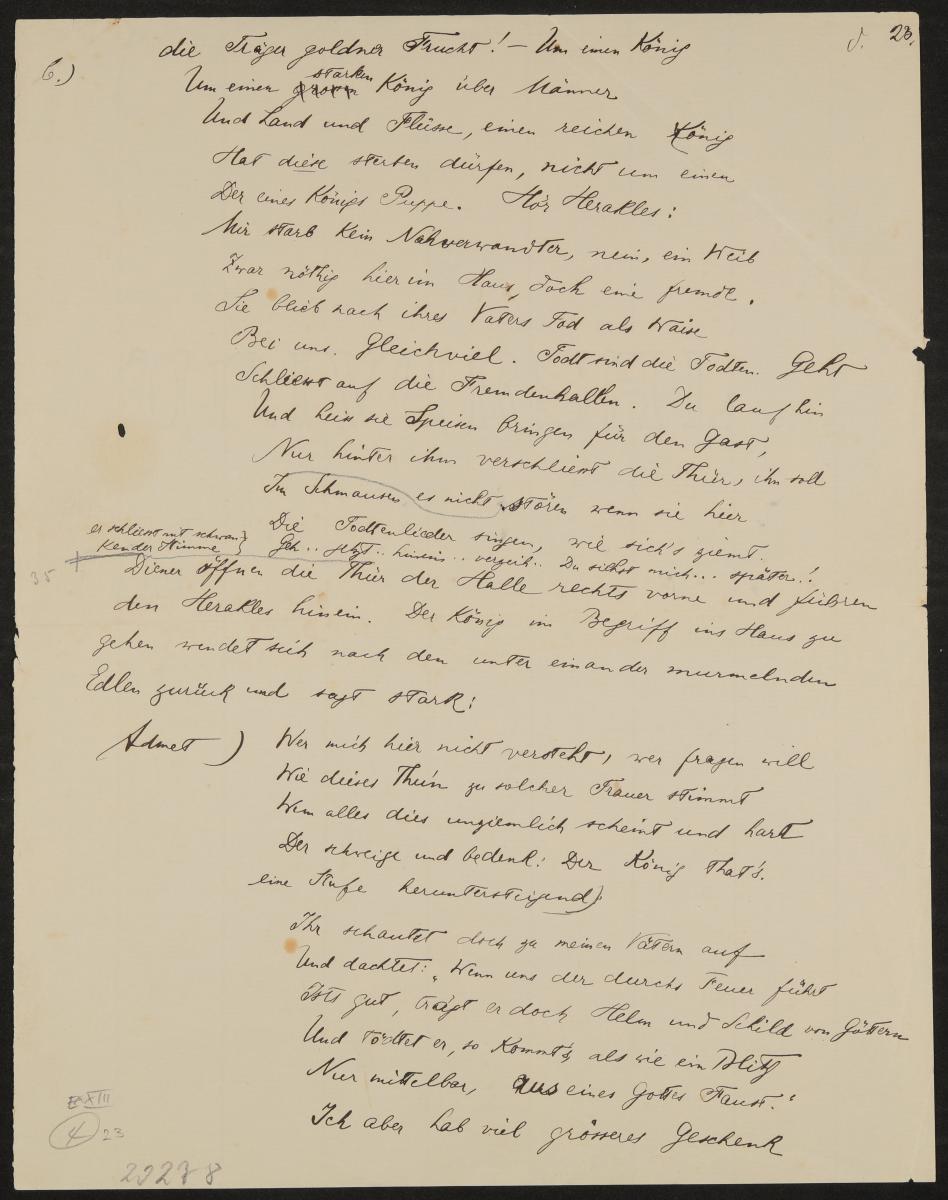 23.
die Träger goldner Frucht! – Um einen König
b.)
starken
Um einen König über Männer
Und Land und Flüsse, einen reichen König
Hat diese sterben dürfen, nicht um einen
Der eines Königs Puppe. Hör Herakles:
Mir starb kein Nahverwandter, nein, ein Weib
Zwar nöthig hier im Haus, doch eine fremde.
Sie blieb nach ihres Vaters Tod als Waise
Bei uns. Gleichviel. Todt sind die Todten. Geht
Schliesst auf die Fremdenhallen. Du lauf hin
Und heiss sie Speisen bringen für den Gast,
Nur hinter ihm verschliesst die Thür, ihn soll
Im Schmausen es nicht stören wenn sie hier
Die Todtenlieder singen, wie sich's ziemt.
er schliesst mit schwan-
kender Stimme}
Geh.. jetzt.. hinein.. verzeih.. Du siehst mich... später..!
35
Diener öffnen die Thür der Halle rechts vorne und führen
den Herakles hinein. Der König im Begriff ins Haus zu
gehen wendet sich nach den unter einander murmelnden
Edlen zurück und sagt stark:
Admet) Wer mich hier nicht versteht, wer fragen will
Wie dieses Thun zu solcher Trauer stimmt
Wem alles dies unziemlich scheint und hart
Der schweige und bedenk: Der König that's.
eine Stufe heruntersteigend)
Ihr schautet doch zu meinen Vätern auf
Und dachtet: „Wenn uns der durchs Feuer führt
Ists gut, trägt er doch Helm und Schild von Göttern
Und tödtet er, so kommt's als wie ein Blitz
Nur mittelbar, aus eines Gottes Faust."
Ich aber hab viel grösseres Geschenk
E XIII
4 23
20278